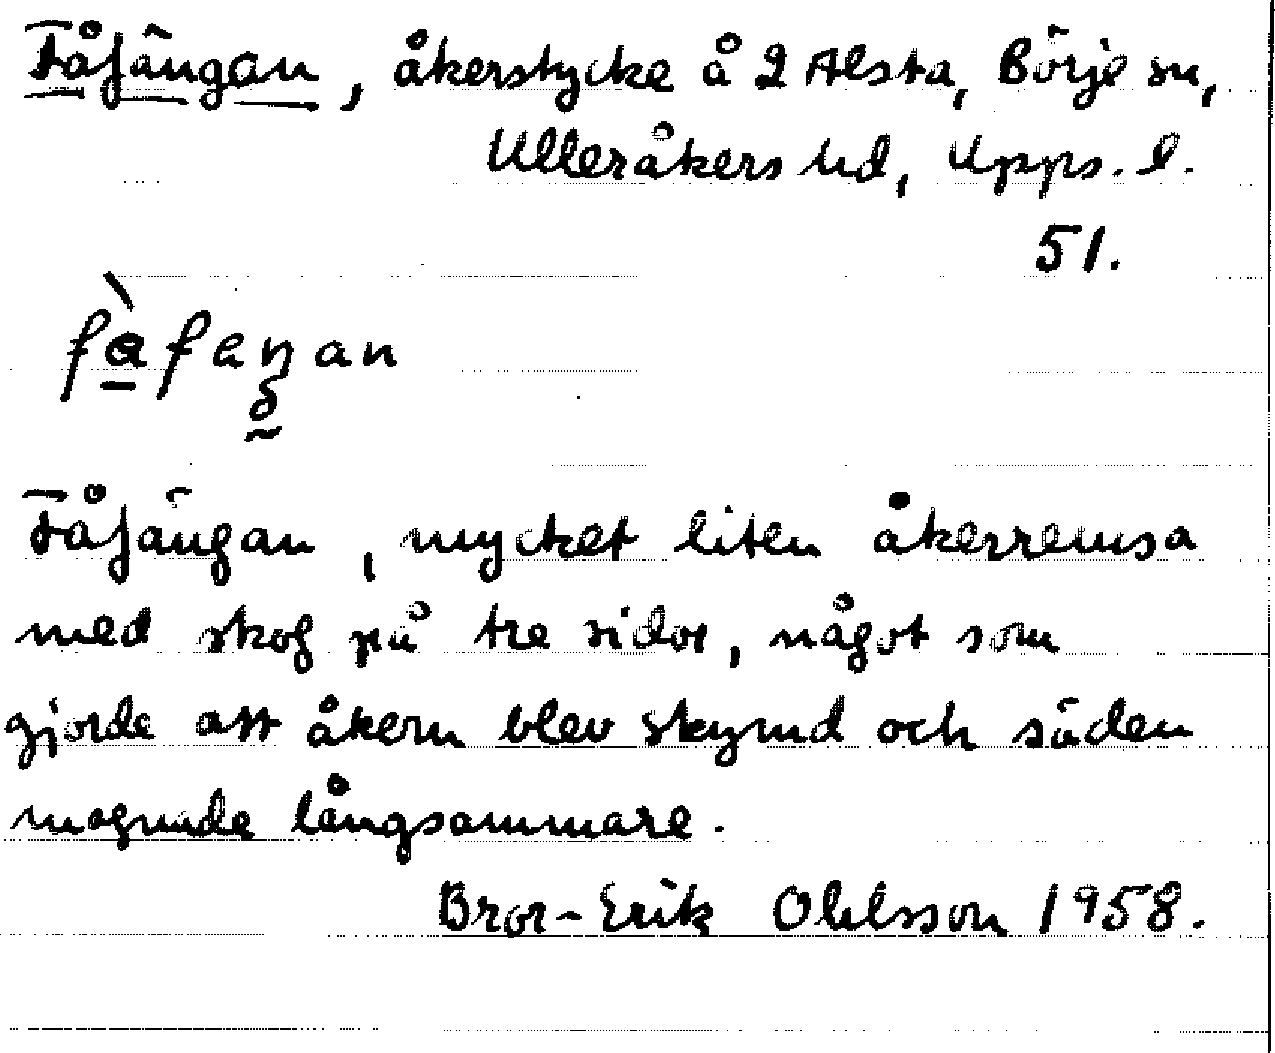 Fåfängan, åkerstycke å 2 Alsta, Börje sn,
Ulleråkers hd, Upps. l.
51.
Fåfängan, mycket liten åkerremsa
med skog på tre sidor, något som
gjorde att åkern blev skymd och säden
mognade långsammare.
Bror-Erik Ohlsson 1958.